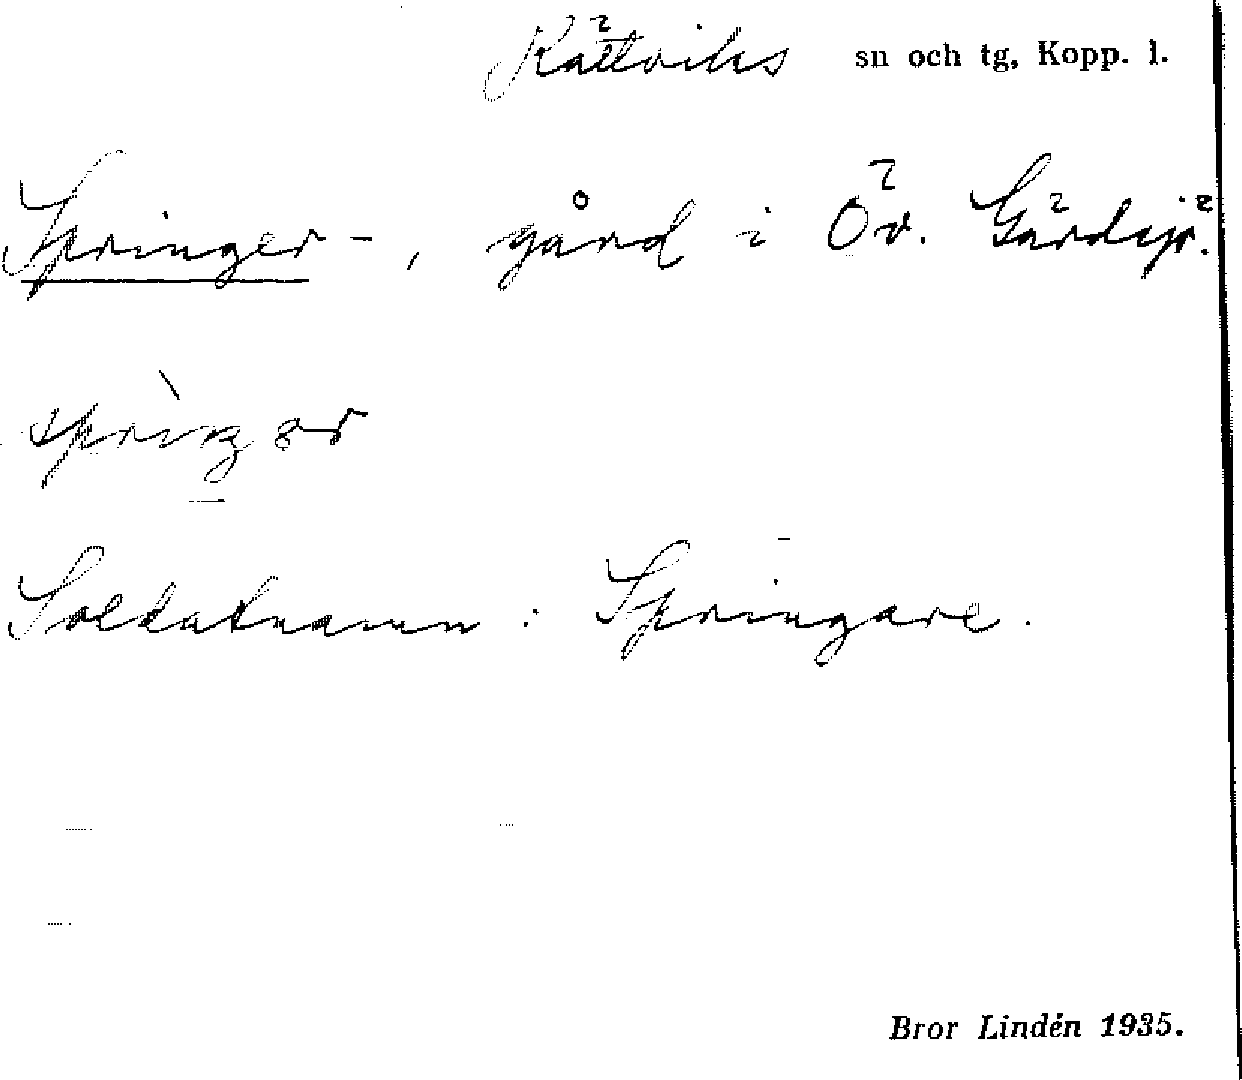 Rättviks sn och tg, Kopp. l.
Springer-, gård i Öv. Gärdsjö.
Soldatnamn: Springare.
Bror Lindén 1935.